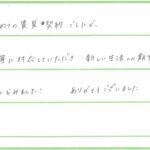 めての賃貸契約でしたが、
寧に対応していただき 新しい生活への期
らみました! ありがとうございました